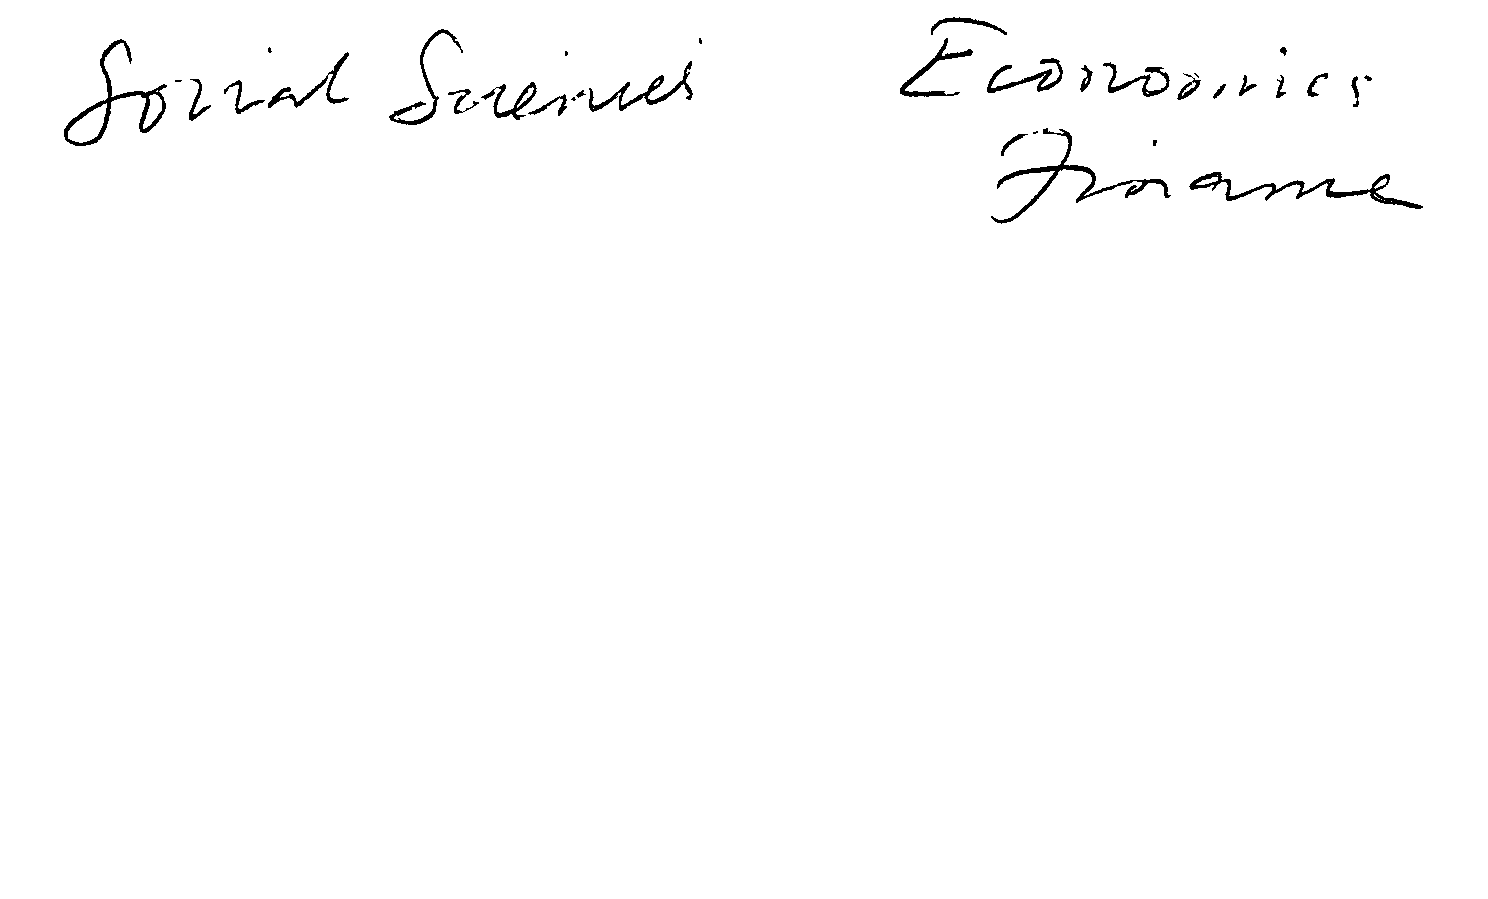 Social Sciences Economics
Finance